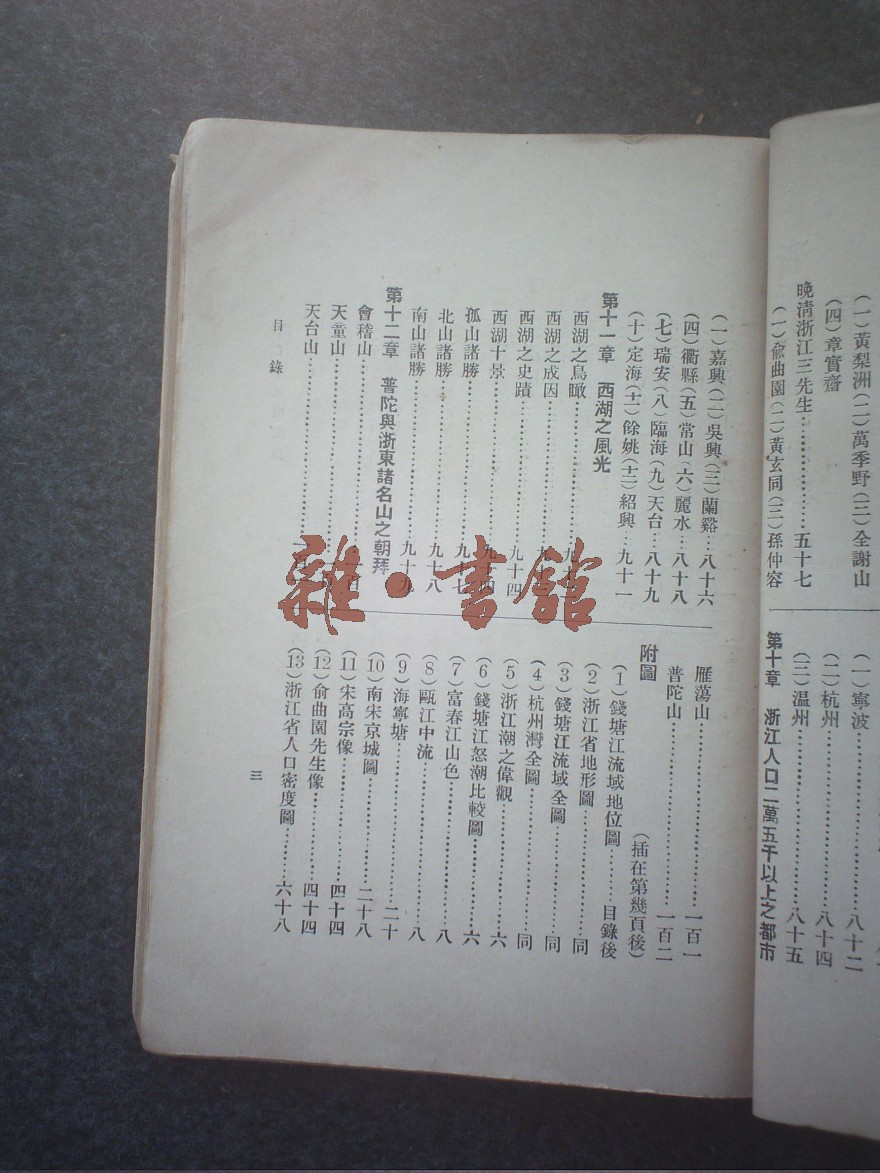 (一)黃梨洲(二)萬季野(三)全謝山
(四)章實齋
晚清浙江三先生……五十七
(一)俞曲園(二)黃玄同(三)孫仲容
(一)寧波……八十二
(二)杭州……八十四
(三)温州……八十五
第十章 浙江人口二萬五千以上之都市
(一)嘉興(二)吳興(三)蘭谿…八十六
(四)衢縣(五)常山(六)麗水…八十八
(七)瑞安(八)臨海(九)天台…八十九
(十)定海(十一)餘姚(十二)紹興…九十一
第十一章 西湖之風光
西湖之鳥瞰……九十
西湖之成因……九十
西湖之史蹟……九十四
西湖十景……九十四
孤山諸勝……九十七
北山諸勝……九十八
南山諸勝……九十九
第十二章 普陀與浙東諸名山之朝拜
會稽山……
天童山……
天台山……
雁蕩山……一百一
普陀山……一百二
附圖 (插在第幾頁後)
(1)錢塘江流域地位圖……目錄後
(2)浙江省地形圖……同
(3)錢塘江流域全圖……同
(4)杭州灣全圖……同
(5)浙江潮之偉觀……六
(6)錢塘江怒潮比較圖……六
(7)富春江山色……八
(8)甌江中流……八
(9)海寧塘……二十
(10)南宋京城圖……二十八
(11)宋高宗像……四十四
(12)俞曲園先生像……四十四
(13)浙江省人口密度圖……六十八
目錄
三
雜·書館